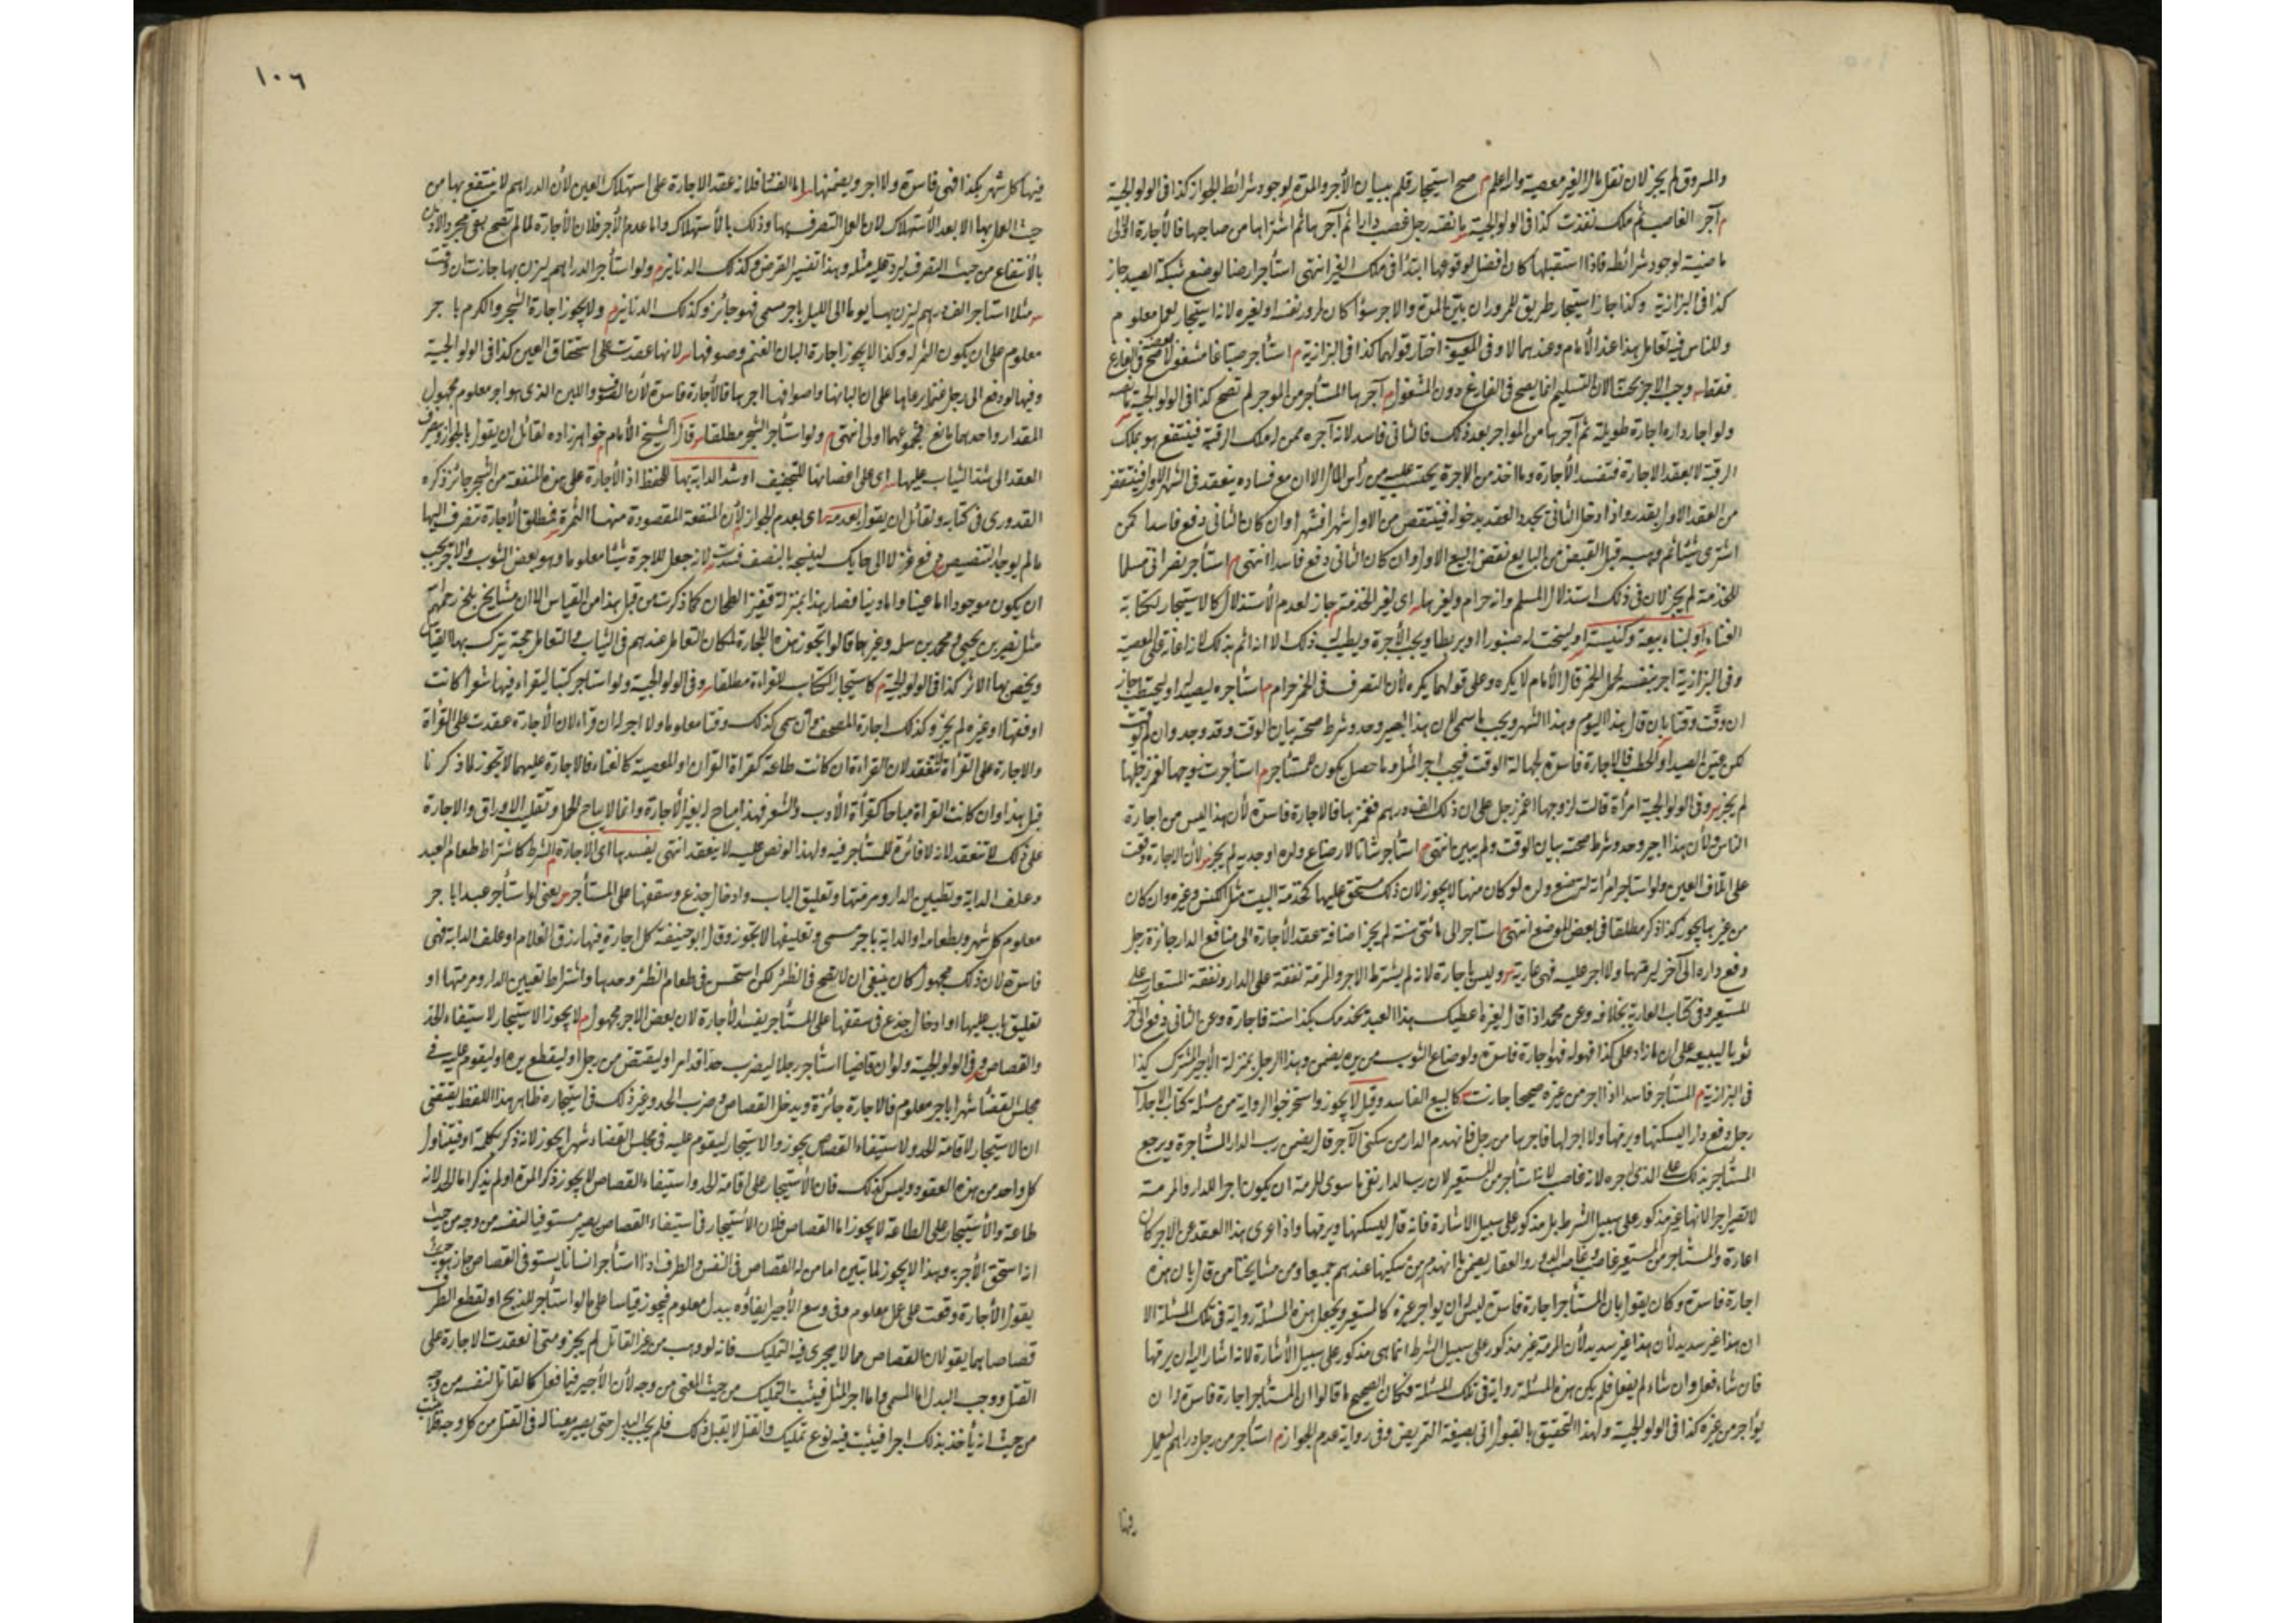 والمسروق لم يجز لان نقل مال الغير معصية والله اعلم م صح استيجار قلم ببيان الأجر والمدة لوجود شرائط الجواز كذا فى الولوالجية
م آجر الغاصب ثم ملك نفذت كذا فى الولوالجية رجل غصب دارا ثم آجرها ثم اشتراها من صاحبها فالأجارة الاولى
ماضية لوجود شرائطه فاذا استقبلها كان افضل لوقوعها ابتداء فى ملك الغير انتهى استأجر ارضا لوضع شبكة الصيد جاز
كذا فى البزازية وكذا جاز استيجار طريق للمرور ان بين المدة والاجر سواء كان لمرور نفسه او لغيره لانه استيجار لعمل معلوم
وللناس فيه تعامل هذا عند الأمام وعندهما لا وفى العيون اختار قولهما كذا فى البزازية م استأجر مشغولا وفارغا صح فى الفارغ
فقط وجب الاجر بحصته لان التسليم انما يصح فى الفارغ دون المشغول م آجرها المستأجر من الموجر لم تصح كذا فى الولوالجية
ولو اجار داره اجارة طويلة ثم آجرها من المواجر بعد ذلك فالثانى فاسد لانه آجره ممن له ملك الرقبة فينتفع هو بملك
الرقبة لا بعقد الاجارة فتفسد الأجارة وما اخذ من الاجرة يحتسب عليه من رأس المال الا ان مع فساده ينعقد فى الشهر الاول فينتقض
من العقد الاول بقدره واذا دخل الثانى يجدد العقد بدخوله فينتقض من الاول شهرا فشهرا وان كان الثانى دفع فاسدا كمن
اشترى شيئا ثم وهبه قبل القبض من البايع نقض البيع الاول وان كان الثانى وقع فاسدا انتهى م استأجر نصرانى مسلما
للخدمة لم يجز لان فى ذلك استذلال المسلم وانه حرام ولغيرها اى لغير الخدمة جاز لعدم الأستذلال كالاستيجار لكتابة
الغناء او لبناء بيعة وكنيسة او لينحت له طنبورا او بربطا ويجب الأجرة ويطيب ذلك الا انه اثم بذلك لانه اعانة على المعصية
وفى البزازية اجر نفسه لحمل الخمر قال الأمام لا يكره وعلى قولهما يكره لأن التصرف فى الخمر حرام م استأجره ليصيد او ليحتطب جاز
ان وقت وقتا بان قال هذا اليوم وهذا الشهر ويجب المسمى لان هذا اجير وحد وشرط صحته بيان الوقت وقد وجد وان لم يوقت
لكن عين الصيد او الحطب فالاجارة فاسدة لجهالة الوقت فيجب اجر المثل وما حصل يكون للمستأجر م استأجرت زوجها لغمز رجلها
لم يجز وفى الولوالجية امرأة قالت لزوجها اغمز رجلى على ان ذلك الف درهم فغمزها فالاجارة فاسدة لأن هذا ليس من اجارة
الناس ولأن هذا اجير وحد وشرط صحته بيان الوقت ولم يبين انتهى م استأجر شاة لارضاع ولده او جديه لم يجز لأن الاجارة وقعت
على اتلاف العين ولو استأجر امرأته لترضع ولده لو كان منها لا يجوز لان ذلك مستحق عليها كخدمة البيت مثل الكنس وغيره وان كان
من غيرها يجوز كذا ذكر مطلقا فى بعض المواضع انتهى م استأجر الى مائتى سنة لم يجز اضافة عقد الأجارة الى منافع الدار جائزة رجل
دفع داره الى آخر ليرمها ولا اجر عليه فهى عارية وليس باجارة لانه لم يشترط الاجر والمرمة نفقة على الدار ونفقة المستعار على
المستعير وفى كتاب العارية بخلافه وعن محمد اذا قال لغيره اعطيك هذا العبد يخدمك بكذا سنة فاجارة وعن الثانى دفع الى آخر
ثوبا ليبيعه على ان ما زاد على كذا فهو له فهو اجارة فاسدة ولو ضاع الثوب من يده يضمن وهذا الرجل بمنزلة الأجير المشترك كذا
فى البزازية م المستأجر فاسدا اذا اجر من غيره صحيحا جازت كالبيع الفاسد وقيل لا يجوز واستخرجوا الرواية من مسئلة كتاب الاجارات
رجل دفع دارا ليسكنها ويرمها ولا اجر لها فاجرها من رجل فانهدم الدار من سكنى الآخر قال يضمن رب الدار المستأجرة ويرجع
المستأجر بذلك على الذى اجره لانه غاصب لانه استأجر من المستعير لان رب الدار نفى ما سوى المرمة ان يكون اجرا للدار والمرمة
لا تصير اجرا لانها غير مذكور على سبيل الشرط بل مذكور على سبيل الاشارة فانه قال ليسكنها ويرمها واذا عرى هذا العقد عن الاجر كان
اعارة والمستأجر من المستعير غاصب وغاصب الدور والعقار يضمن ما انهدم من سكنها عندهم جميعا ومن مشايخنا من قال بان هذه
اجارة فاسدة وكان يقول بان المستأجر اجارة فاسدة ليس له ان يواجر غيره كالمستعير ويجعل هذه المسئلة رواية فى تلك المسئلة الا
ان هذا غير سديد لأن هذا غير سديد لأن المرمة غير مذكور على سبيل الشرط انما هى مذكور على سبيل الأشارة لانه اشار اليه ان يرمها
فان شاء فعل وان شاء لم يفعل فلم يكن هذه المسئلة رواية فى تلك المسئلة فكان الصحيح ما قالوا ان المستأجر اجارة فاسدة له ان
يؤاجر من غيره كذا فى الولوالجية ولهذا التحقيق بالقبول اتى بصيغة التمريض وفى رواية عدم الجواز م استأجر من رجل دراهم ليعمل
فيها
١٠٦
فيها كل شهر بكذا فهى فاسدة ولا اجر ويضمنها اما الفساد فلانه عقد الاجارة على استهلاك العين لأن الدراهم لا ينتفع بها من
حيث العمل بها الا بعد الأستهلاك لان العمل التصرف بها وذلك بالأستهلاك واما عدم الأجر فلان الأجارة لما لم تصح بقى مجرد الأذن
بالأنتفاع من حيث التصرف ليرد عليه مثله وهذا تفسير القرض وكذلك الدنانير م ولو استأجر الدراهم ليزن بها جازت ان وقت
مثلا استأجر الف درهم ليزن بها يوما الى الليل باجر مسمى فهو جائز وكذلك الدنانير م ولا يجوز اجارة الشجر والكرم باجر
معلوم على ان يكون الثمر له وكذا لا يجوز اجارة البان الغنم وصوفها لانها عقدت على استحقاق العين كذا فى الولوالجية
وفيها لو دفع الى رجل غنما يرعاها على ان البانها واصوافها اجرها فالأجارة فاسدة لأن الصوف واللبن الذى هو اجر معلوم مجهول
المقدار واحدهما مانع فمجموعهما اولى انتهى م ولو استأجر الشجر مطلقا قال الشيخ الأمام خواهرزاده لقائل ان يقول بالجواز وصرف
العقد الى شد الثياب عليها اى على اغصانها للتجفيف او شد الدابة بها للحفظ اذ الأجارة على هذه المنفعة من الشجر جائز ذكره
القدورى فى كتابه ولقائل ان يقول بعدمه اى بعدم الجواز لأن المنفعة المقصودة منها الثمرة فمطلق الأجارة تنصرف اليها
ما لم يوجد التنصيص م دفع غزلا الى حايك لينسجه بالنصف فسدت لانه جعل للاجرة شيئا معلوما وهو بعض الثوب والاجر يجب
ان يكون موجودا اما عينا واما دينا فصار هذا بمنزلة قفيز الطحان كما ذكرت من قبل هذا من القياس الا ان مشايخ بلخ رحمهم الله
مثل نصير بن يحيى ومحمد بن سلمة وغيرهما قالوا تجوز هذه الاجارة لمكان التعامل عندهم فى الثياب والتعامل حجة يترك بها القياس
ويخص بها الاثر كذا فى الولوالجية م كاستيجار الكتاب للقراءة مطلقا وفى الولوالجية ولو استأجر كتبا ليقراء فيها شعرا كانت
او فقها او غيره لم يجز وكذلك اجارة المصحف وان سمى كذلك وقتا معلوما ولا اجر له ان قراء لان الأجارة عقدت على القرأة
والاجارة على القرأة لا تنعقد لان القراءة ان كانت طاعة كقراة القرآن او المعصية كالغناء فالاجارة عليهما لا تجوز لما ذكرنا
قبل هذا وان كانت القرأة مباحا كقرأة الأدب والشعر فهذا مباح له بغير الأجارة وانما لا يباح الحمل وتقليب الاوراق والاجارة
على ذلك لا تنعقد لانه لا فائدة للمستأجر فيه ولهذا لو نص عليه لا ينعقد انتهى يفسدها اى الأجارة الشرط كاشتراط طعام العبد
وعلف الدابة وتطيين الدار ومرمتها وتعليق الباب وادخال جذع وسقفها على المستأجر يعنى لو استأجر عبدا باجر
معلوم كل شهر وبطعامه او الدابة باجر مسمى وتعليفها لا تجوز وقال ابو حنيفة كل اجارة فيها رزق الغلام او علف الدابة فهى
فاسدة لان ذلك مجهول كان ينبغى ان لا تصح فى الظئر لكن استحسن فى طعام الظئر وحدها واشتراط تطيين الدار ومرمتها او
تعليق باب عليها او ادخال جذع فى سقفها على المستأجر يفسد الأجارة لان بعض الاجر مجهول م لا يجوز الاستيجار لاستيفاء الحد
والقصاص وفى الولوالجية ولو ان قاضيا استأجر رجلا ليضرب حدا قد لزم او ليقتص من رجل او ليقطع يده او ليقوم عليه فى
مجلس القضاء شهرا باجر معلوم فالاجارة جائزة ويدخل القصاص وضرب الحد وغير ذلك فى استيجاره ظاهر هذا اللفظ يقتضى
ان الاستيجار لاقامة الحد ولاستيفاء القصاص يجوز والاستيجار ليقوم عليه فى مجلس القضاء شهرا يجوز لانه ذكر بكلمة او فيتناول
كل واحد من هذه العقود وليس كذلك فان الأستيجار على اقامة الحد واستيفاء القصاص لا يجوز ذكر المدة او لم يذكر اما الحد لانه
طاعة والأستيجار على الطاعة لا يجوز اما القصاص فلان الاستيجار فى استيفاء القصاص يصير مستوفيا لنفسه من وجه من حيث
انه استحق الأجر به وهذا لا يجوز لما تبين اما من له القصاص فى النفس والطرف اذا استأجر انسانا يستوفى القصاص جاز هو حيث
يقول الأجارة وقعت على عمل معلوم وفى وسع الأجير ايفاؤه ببدل معلوم فيجوز قياسا على ما لو استأجر للذبح او لقطع الطرف
قصاصا هما يقولان القصاص مما لا يجرى فيه التمليك فانه لو وهب من غير القاتل لم يجز ومتى انعقدت الاجارة على
القتل ووجب البدل اما المسمى واما اجر المثل فيثبت التمليك من حيث المعنى من وجه لأن الأجير فيما فعل كالقاتل لنفسه من وجه
من حيث انه يأخذ بذلك اجرا فيثبت فيه نوع تمليك والقتل لا يقبل ذلك فلم يجب البدل حتى يصير معينا له فى القتل من كل وجه